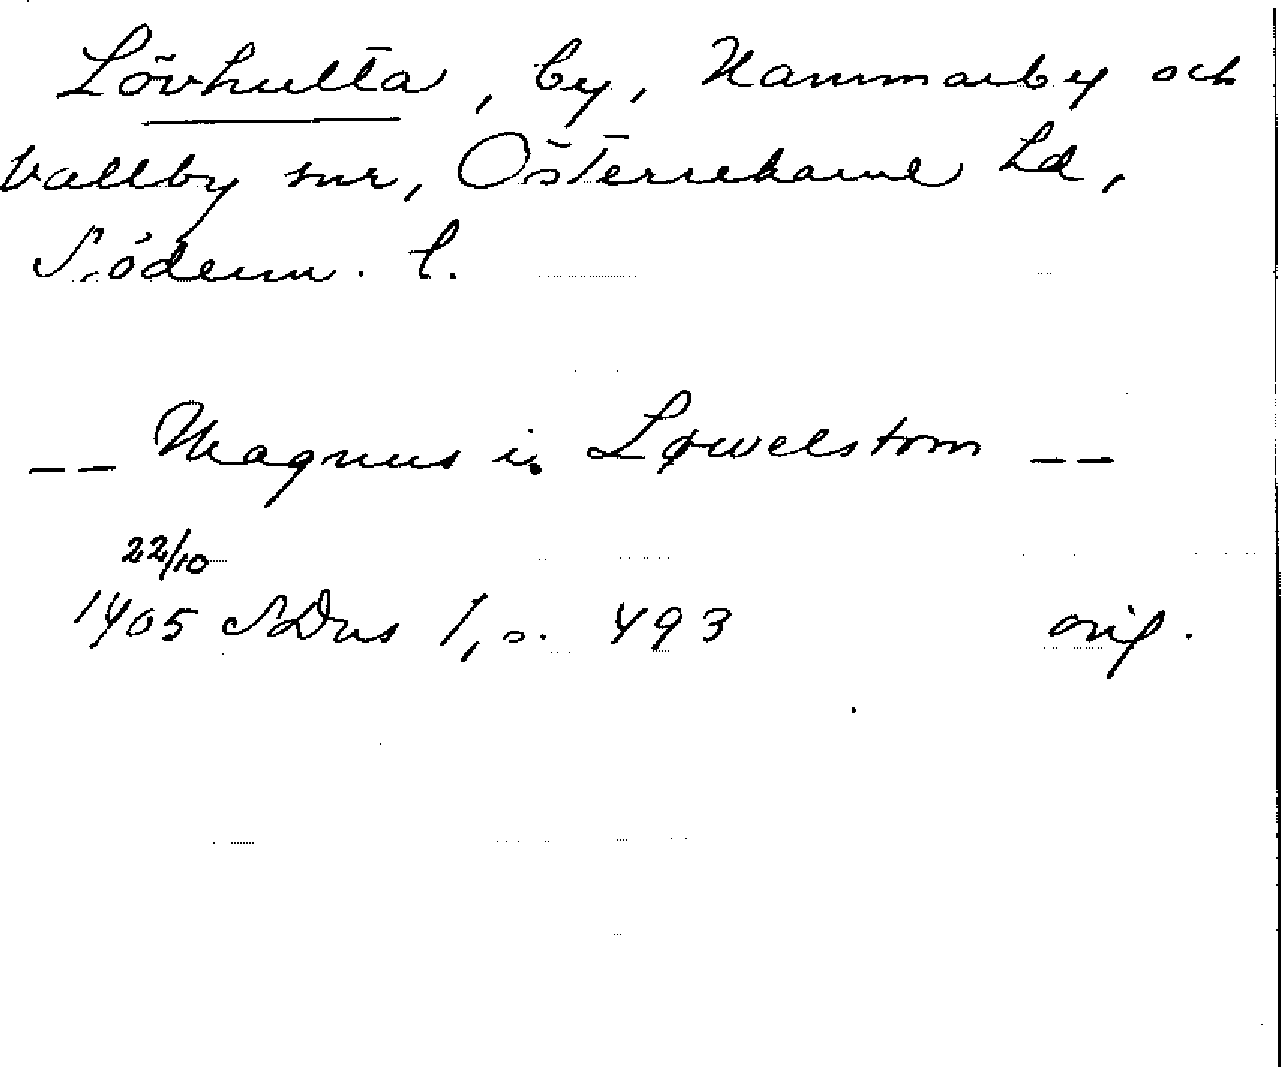 Lövhulta, by, Hammarby och
Vallby snr, Österrekarne hd,
Söderm. l.
-- Magnus i Løwelstom --
22/10
1405 SDns 1, s. 493 orig.